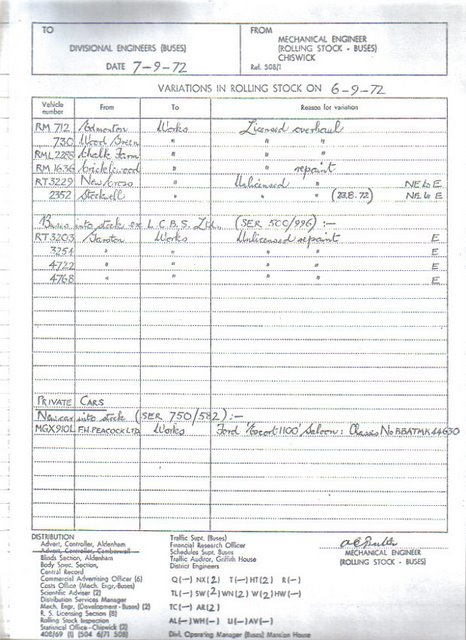 TO
FROM
DIVISIONAL ENGINEERS (BUSES)
MECHANICAL ENGINEER
(ROLLING STOCK - BUSES)
CHISWICK
DATE 7-9-72
Ref. 508/1
VARIATIONS IN ROLLING STOCK ON 6-9-72
Vehicle number From To Reason for variation
RM 712 Edmonton Works Licensed overhaul
730 Wood Green " " "
RML2288 Chalk Farm " " "
RM 1636 Cricklewood " " repaint
RT3229 New Cross " Unlicensed " NE to E
2352 Stockwell " " " (23.8.72) NE to E
Buses into stock ex L.C.B.S. Ltd., (SER 500/996) :-
RT3203 Garston Works Unlicensed repaint E
3251 " " " " E
4722 " " " " E
4768 " " " " E
PRIVATE CARS
New car into stock (SER 750/582) :-
MGX910L F.H. PEACOCK LTD. Works Ford 'Escort 1100' Saloon: Chassis No BBATMK44630
DISTRIBUTION
Advert. Controller, Aldenham
Advert. Controller, Camberwell
Blinds Section, Aldenham
Body Spec. Section,
Central Record
Commercial Advertising Officer (6)
Costs Office (Mech. Engr.-Buses)
Scientific Adviser (2)
Distribution Services Manager
Mech. Engr. (Development-Buses) (2)
R. S. Licensing Section (8)
Rolling Stock Inspection
Statistical Office-Chiswick (2)
408/69 (I) (504 6/71 508)
Traffic Supt. (Buses)
Financial Research Officer
Schedules Supt. Buses
Traffic Auditor, Griffith House
District Engineers
Q(—) NX(2) T(—) HT(2) R(—)
TL(—) SW(2) WN(2) W(2) HW(—)
TC(—) AR(2)
AL(—) WH(—) U(—) AV(—)
Divl. Operating Manager (Buses) Mansion House
MECHANICAL ENGINEER
(ROLLING STOCK - BUSES)